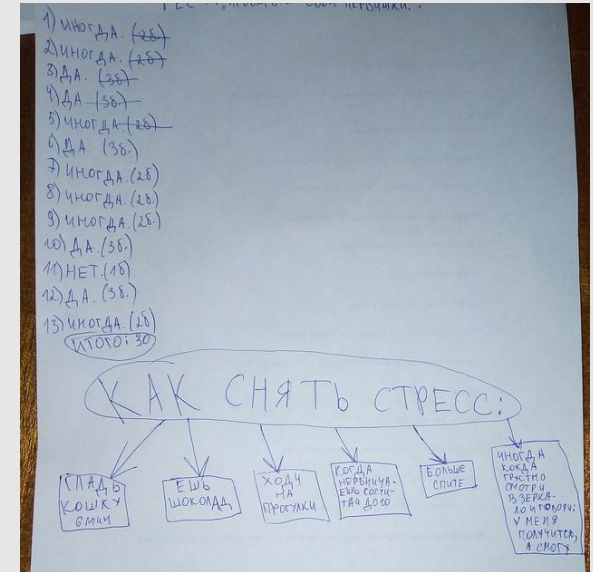 ТЕСТ: „ проверь свои нервишки."
1) ИНОГДА. (2б)
2) ИНОГДА. (2б)
3) ДА. (3б)
4) ДА (3б.)
5) ИНОГДА (2б)
6) ДА. (3б.)
7) ИНОГДА. (2б)
8) ИНОГДА. (2б.)
9) ИНОГДА. (2б.)
10) ДА. (3б.)
11) НЕТ. (1б)
12) ДА. (3б.)
13) ИНОГДА. (2б)
ИТОГО: 30
КАК СНЯТЬ СТРЕСС:
ГЛАДЬ
КОШКУ
6 МИН
ЕШЬ
ШОКОЛАД
ХОДИ
НА
ПРОГУЛКИ
КОГДА
НЕРВНИЧА-
ЕШЬ СОСЧИ-
ТАЙ ДО 10
БОЛЬШЕ
СПИТЕ
ИНОГДА
КОКДА
ГРУСТНО
СМОТРИ
В ЗЕРКА-
ЛО И ГОВОРИ:
У МЕНЯ
ПОЛУЧИТСЯ,
Я СМОГУ